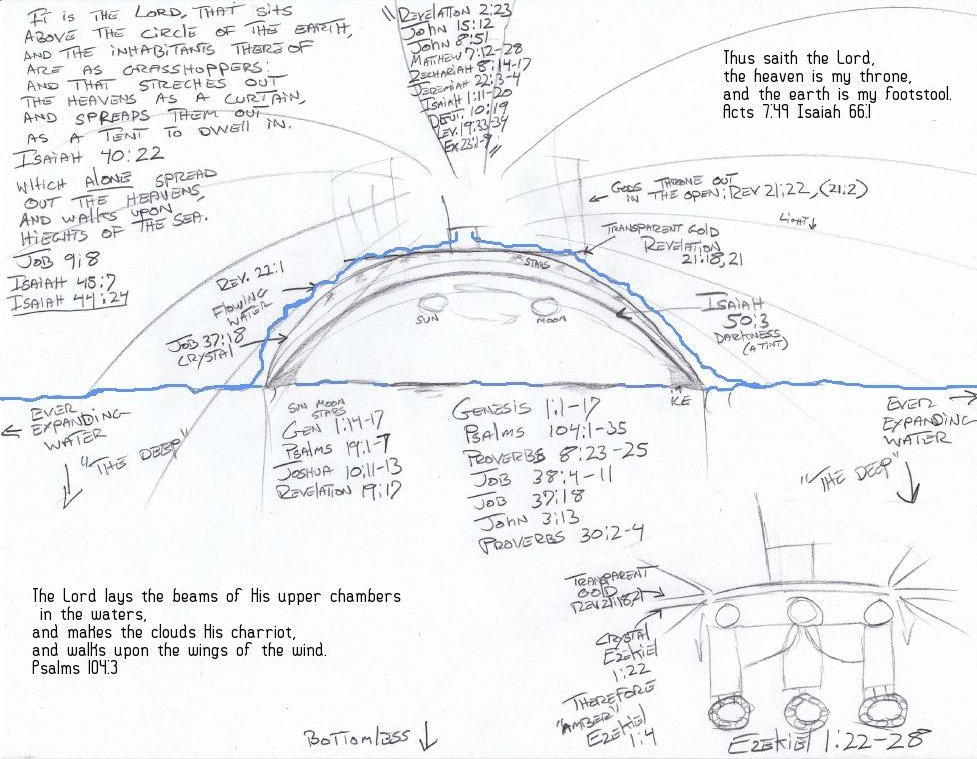 It is the Lord, that sits
above the circle of the earth,
and the inhabitants there of
are as grasshoppers:
and that streches out
the heavens as a curtain,
and spreads them out
as a tent to dwell in.
Isaiah 40:22
Which alone spread
out the heavens,
and walks upon
hieghts of the sea.
Job 9:8
Isaiah 45:7
Isaiah 44:24
Revelation 2:23
John 15:12
John 8:51
Matthew 7:12-28
Zechariah 8:14-17
Jeremiah 22:3-4
Isaiah 1:11-20
Deut. 10:19
Lev. 19:33-34
Ex 23:1-9
Thus saith the Lord,
the heaven is my throne,
and the earth is my footstool.
Acts 7:49 Isaiah 66:1
Gods throne out
in the open: Rev 21:22, (21:2)
Light
Transparent Gold
Revelation
21:18,21
Stars
Rev. 22:1
Flowing
Water
Job 37:18
Crystal
Sun
Moon
Isaiah
50:3
Darkness
(a tint)
Ice
Ever
Expanding
Water
"The Deep"
Sun Moon
Stars
Gen 1:14-17
Psalms 19:1-7
Joshua 10:11-13
Revelation 19:17
Genesis 1:1-17
Psalms 104:1-35
Proverbs 8:23-25
Job 38:4-11
Job 37:18
John 3:13
Proverbs 30:2-4
Ever
Expanding
Water
"The Deep"
The Lord lays the beams of His upper chambers
in the waters,
and makes the clouds His charriot,
and walks upon the wings of the wind.
Psalms 104:3
Bottomless
Transparent
Gold
Rev 21:18,21
Crystal
Ezekiel
1:22
Therefore
"Amber"
Ezekiel
1:4
Ezekiel 1:22-28